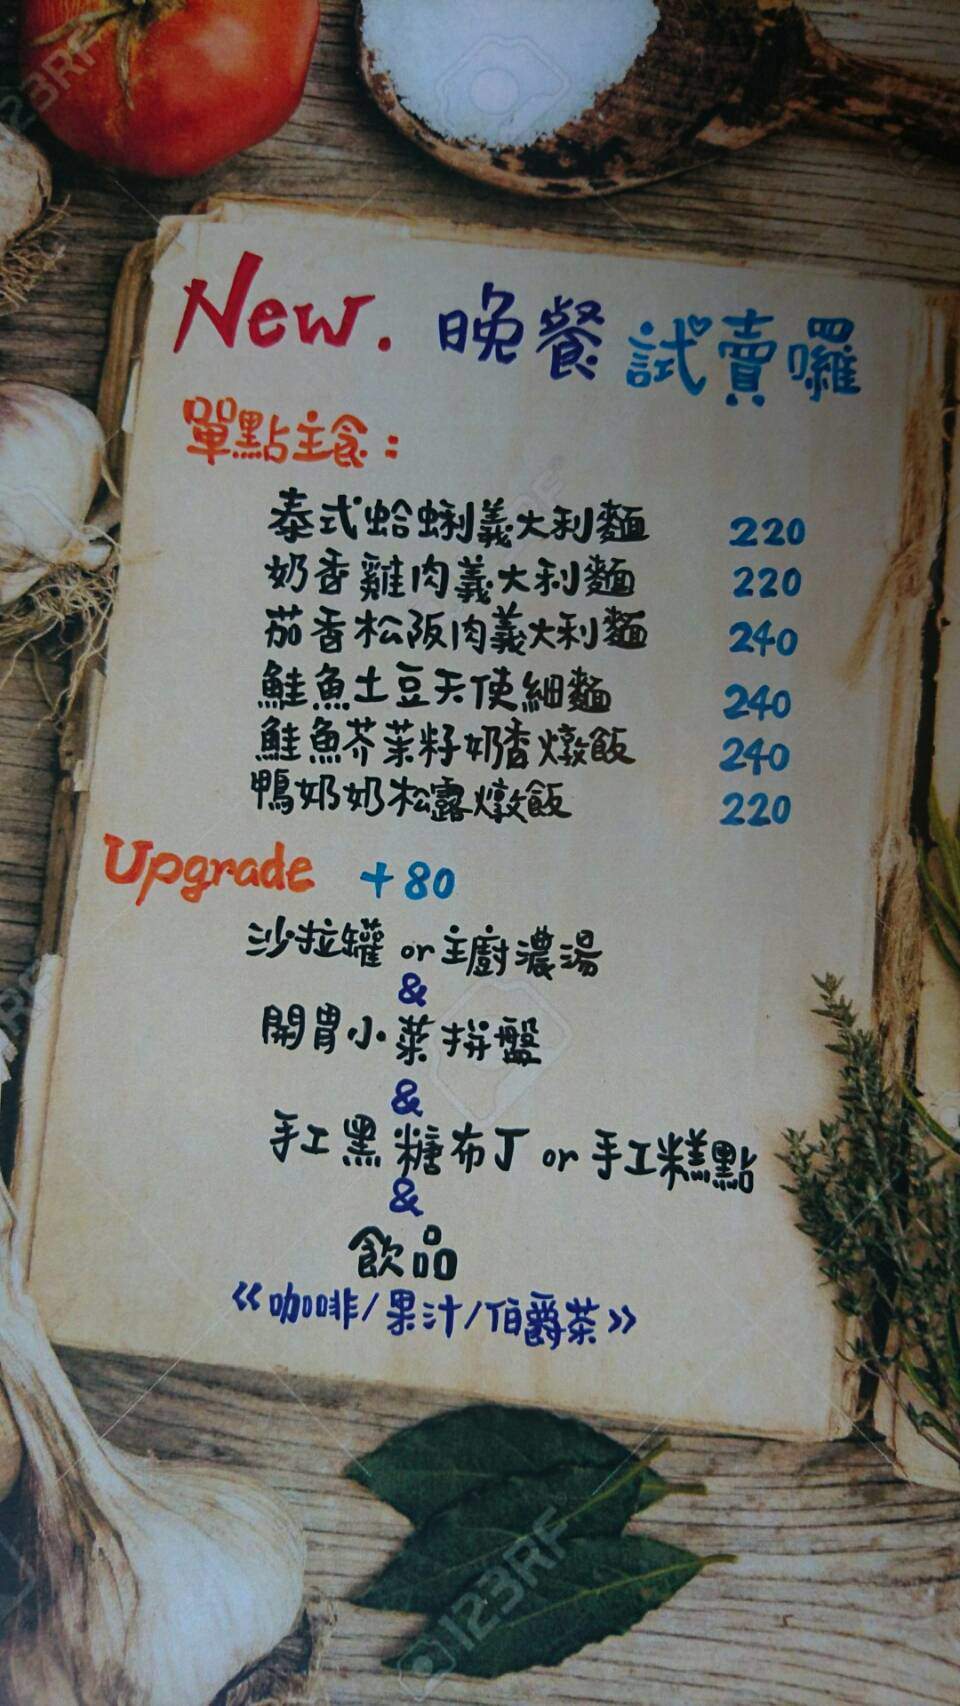 New. 晚餐 試賣囉
單點主食：
泰式蛤蜊義大利麵 220
奶香雞肉義大利麵 220
茄香松阪肉義大利麵 240
鮭魚土豆天使細麵 240
鮭魚芥茉籽奶香燉飯 240
鴨奶奶松露燉飯 220
Upgrade +80
沙拉罐 or 主廚濃湯
&
開胃小菜拼盤
&
手工黑糖布丁 or 手工糕點
&
飲品
《咖啡/果汁/伯爵茶》
123RF